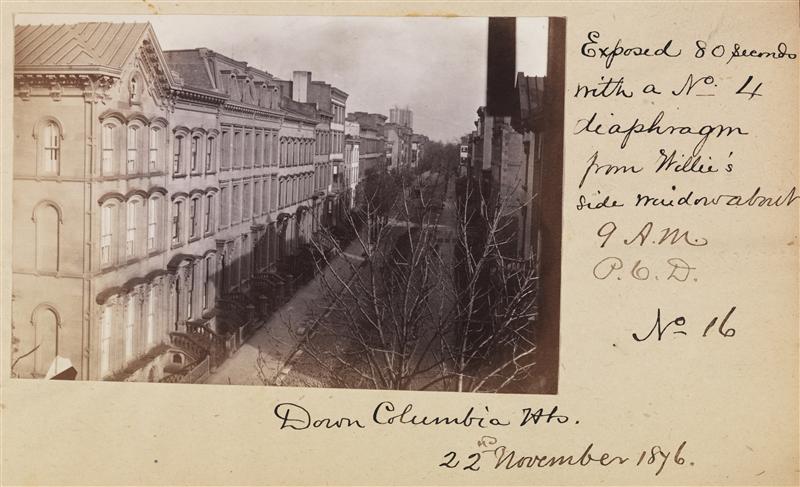 Exposed 80 seconds
with a No. 4
diaphragm
from Willie's
side window about
9 A.M.
P.C.D.
No 16
Down Columbia Hts.
22nd November 1876.